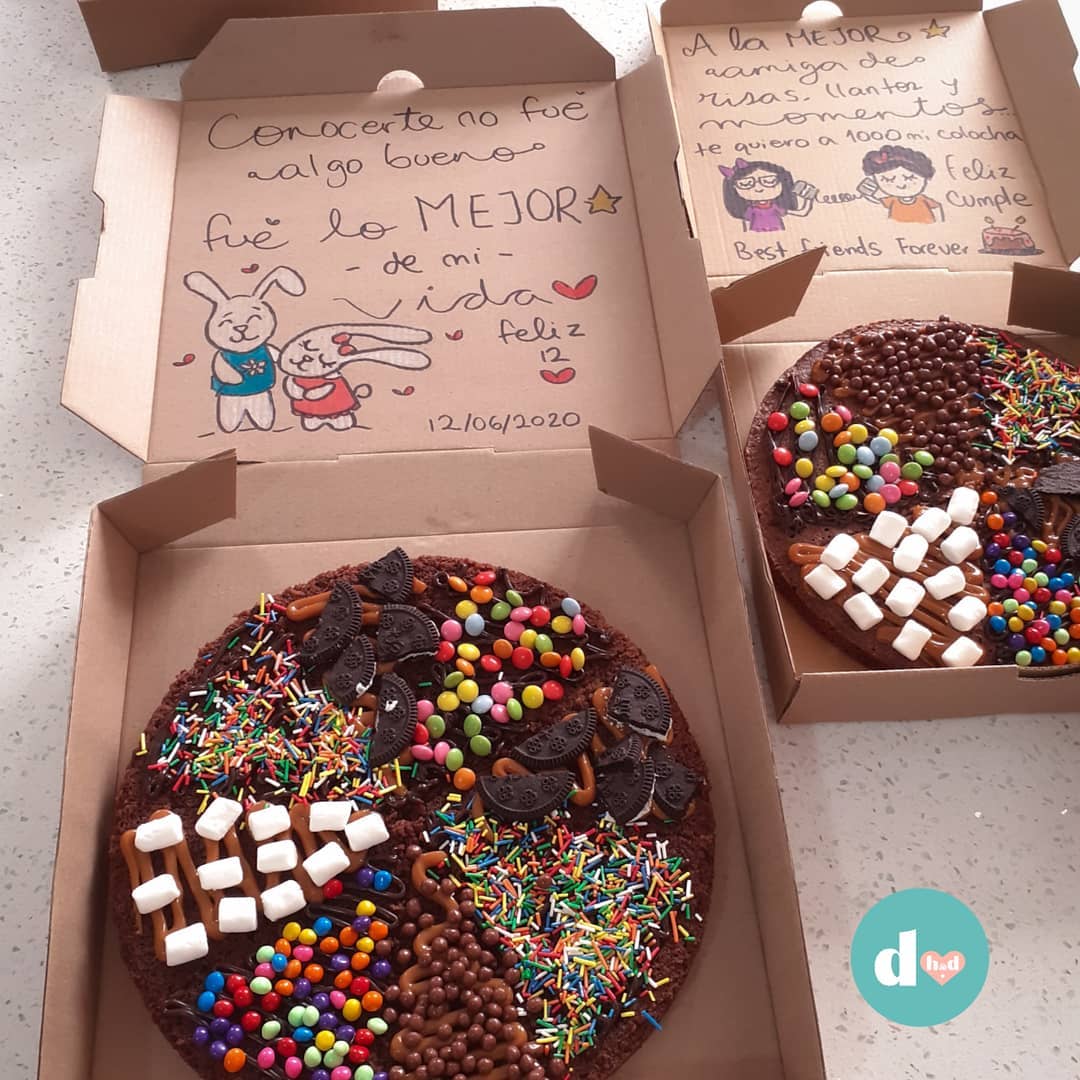 Conocerte no fué
algo bueno
fué lo MEJOR
- de mi -
vida
feliz
12
12/06/2020
A la MEJOR
amiga de
risas, llantos y
momentos...
te quiero a 1000 mi colocha
Feliz
Cumple
Best friends Forever
d
h&d